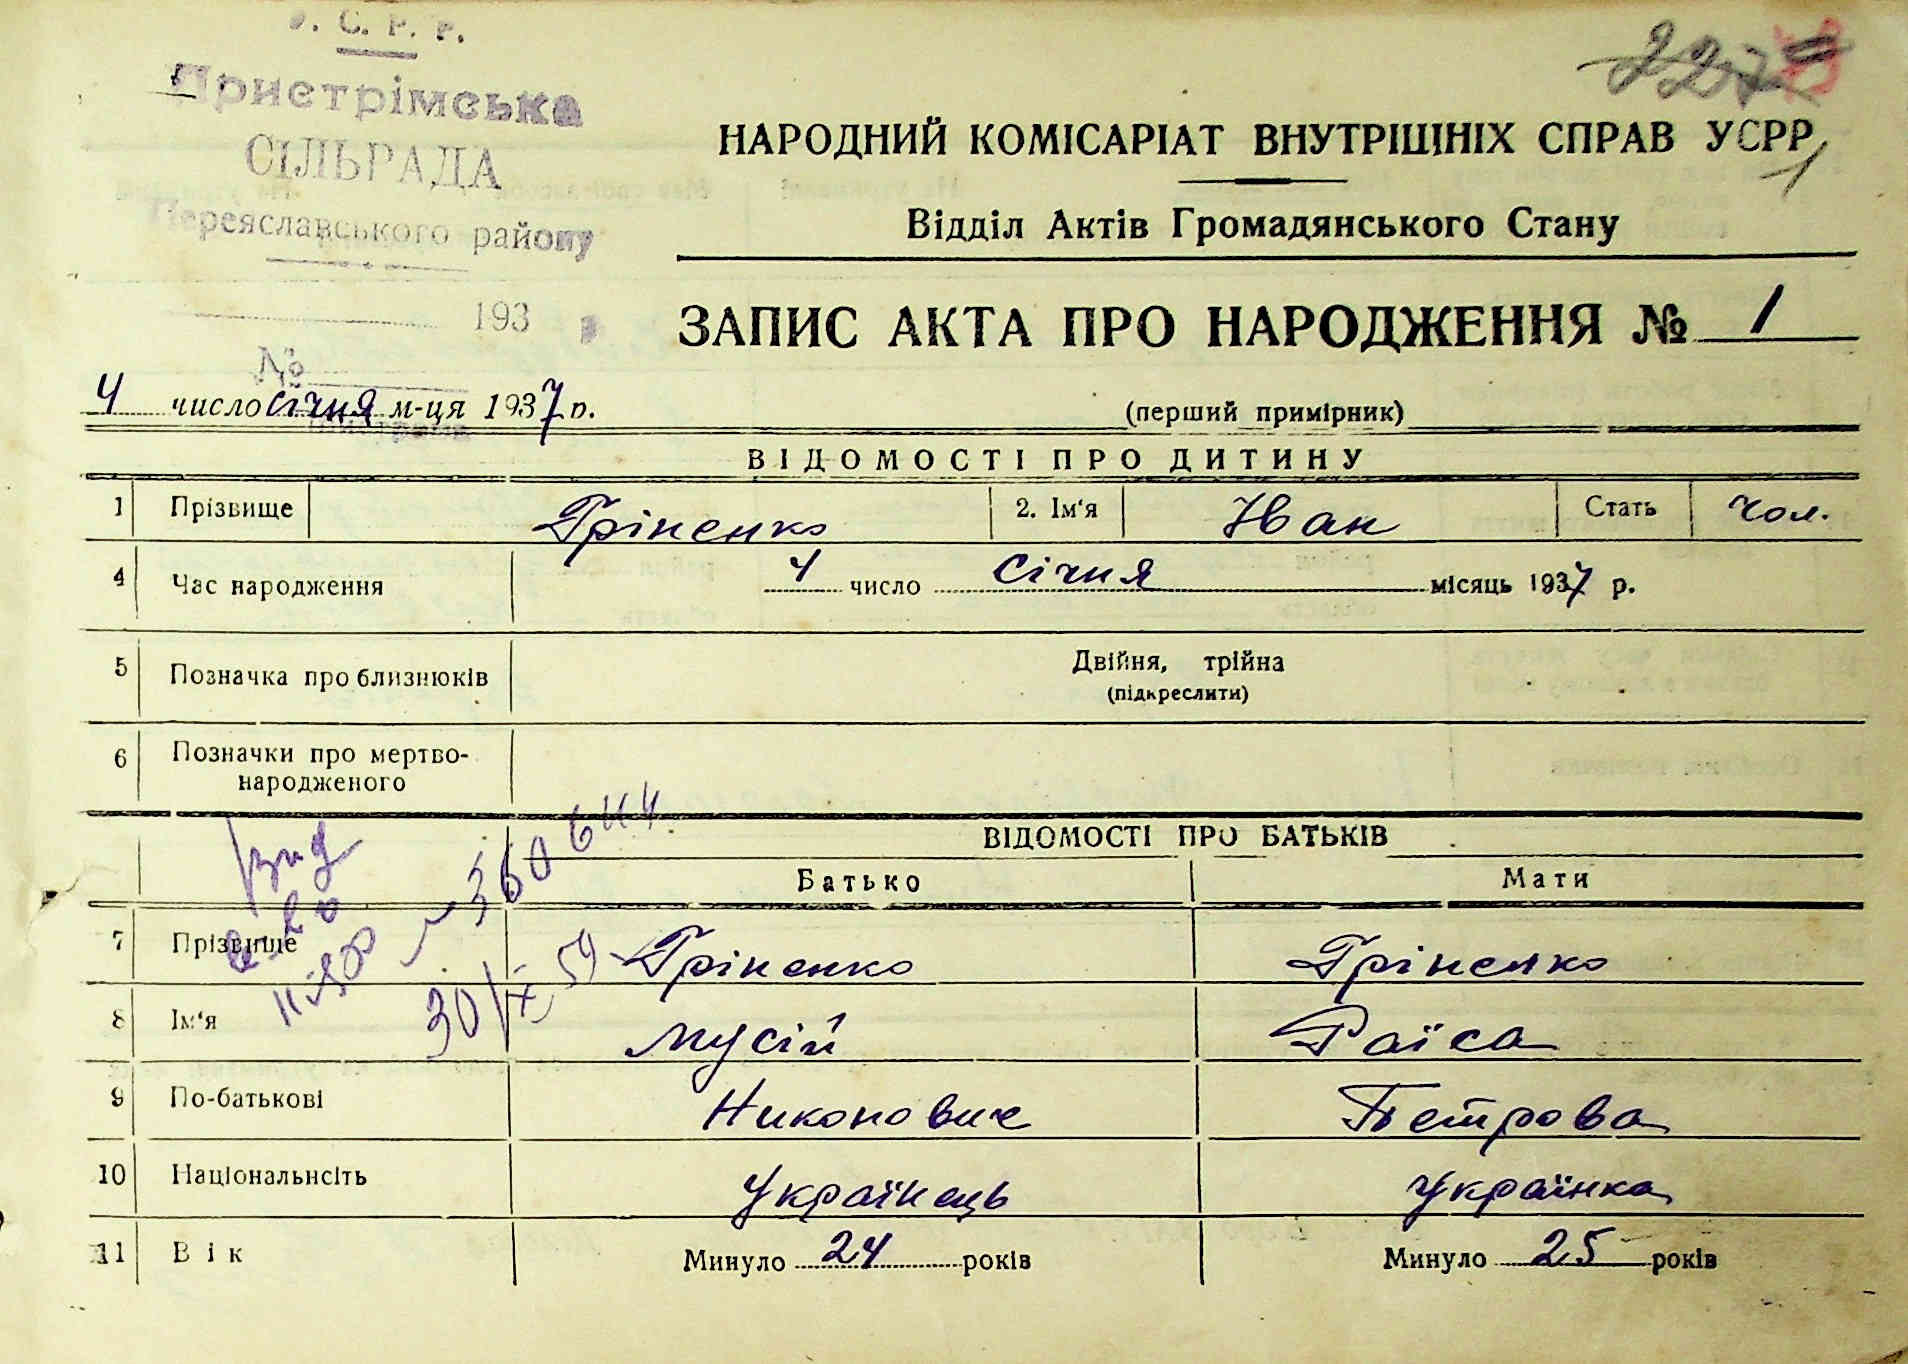 У. С. Р. Р.
Пристрімська
СІЛЬРАДА
Переяславського району
193
№
227
НАРОДНИЙ КОМІСАРІАТ ВНУТРІШНІХ СПРАВ УСРР
1
Відділ Актів Громадянського Стану
ЗАПИС АКТА ПРО НАРОДЖЕННЯ № 1
4 число січня м-ця 1937 р.
(перший примірник)
ВІДОМОСТІ ПРО ДИТИНУ
1 Прізвище Гріненко 2. Ім'я Іван Стать чол.
4 Час народження 4 число Січня місяць 1937 р.
5 Позначка про близнюків Двійня, трійна
(підкреслити)
6 Позначки про мертво-
народженого
ВІДОМОСТІ ПРО БАТЬКІВ
Батько Мати
7 Прізвище Гріненко Гріненко
8 Ім'я Мусій Раїса
9 По-батькові Никонович Петрова
10 Національнсіть Українець Українка
11 Вік Минуло 24 років Минуло 25 років
Вид
св-во
№ 360644
30/IX 59